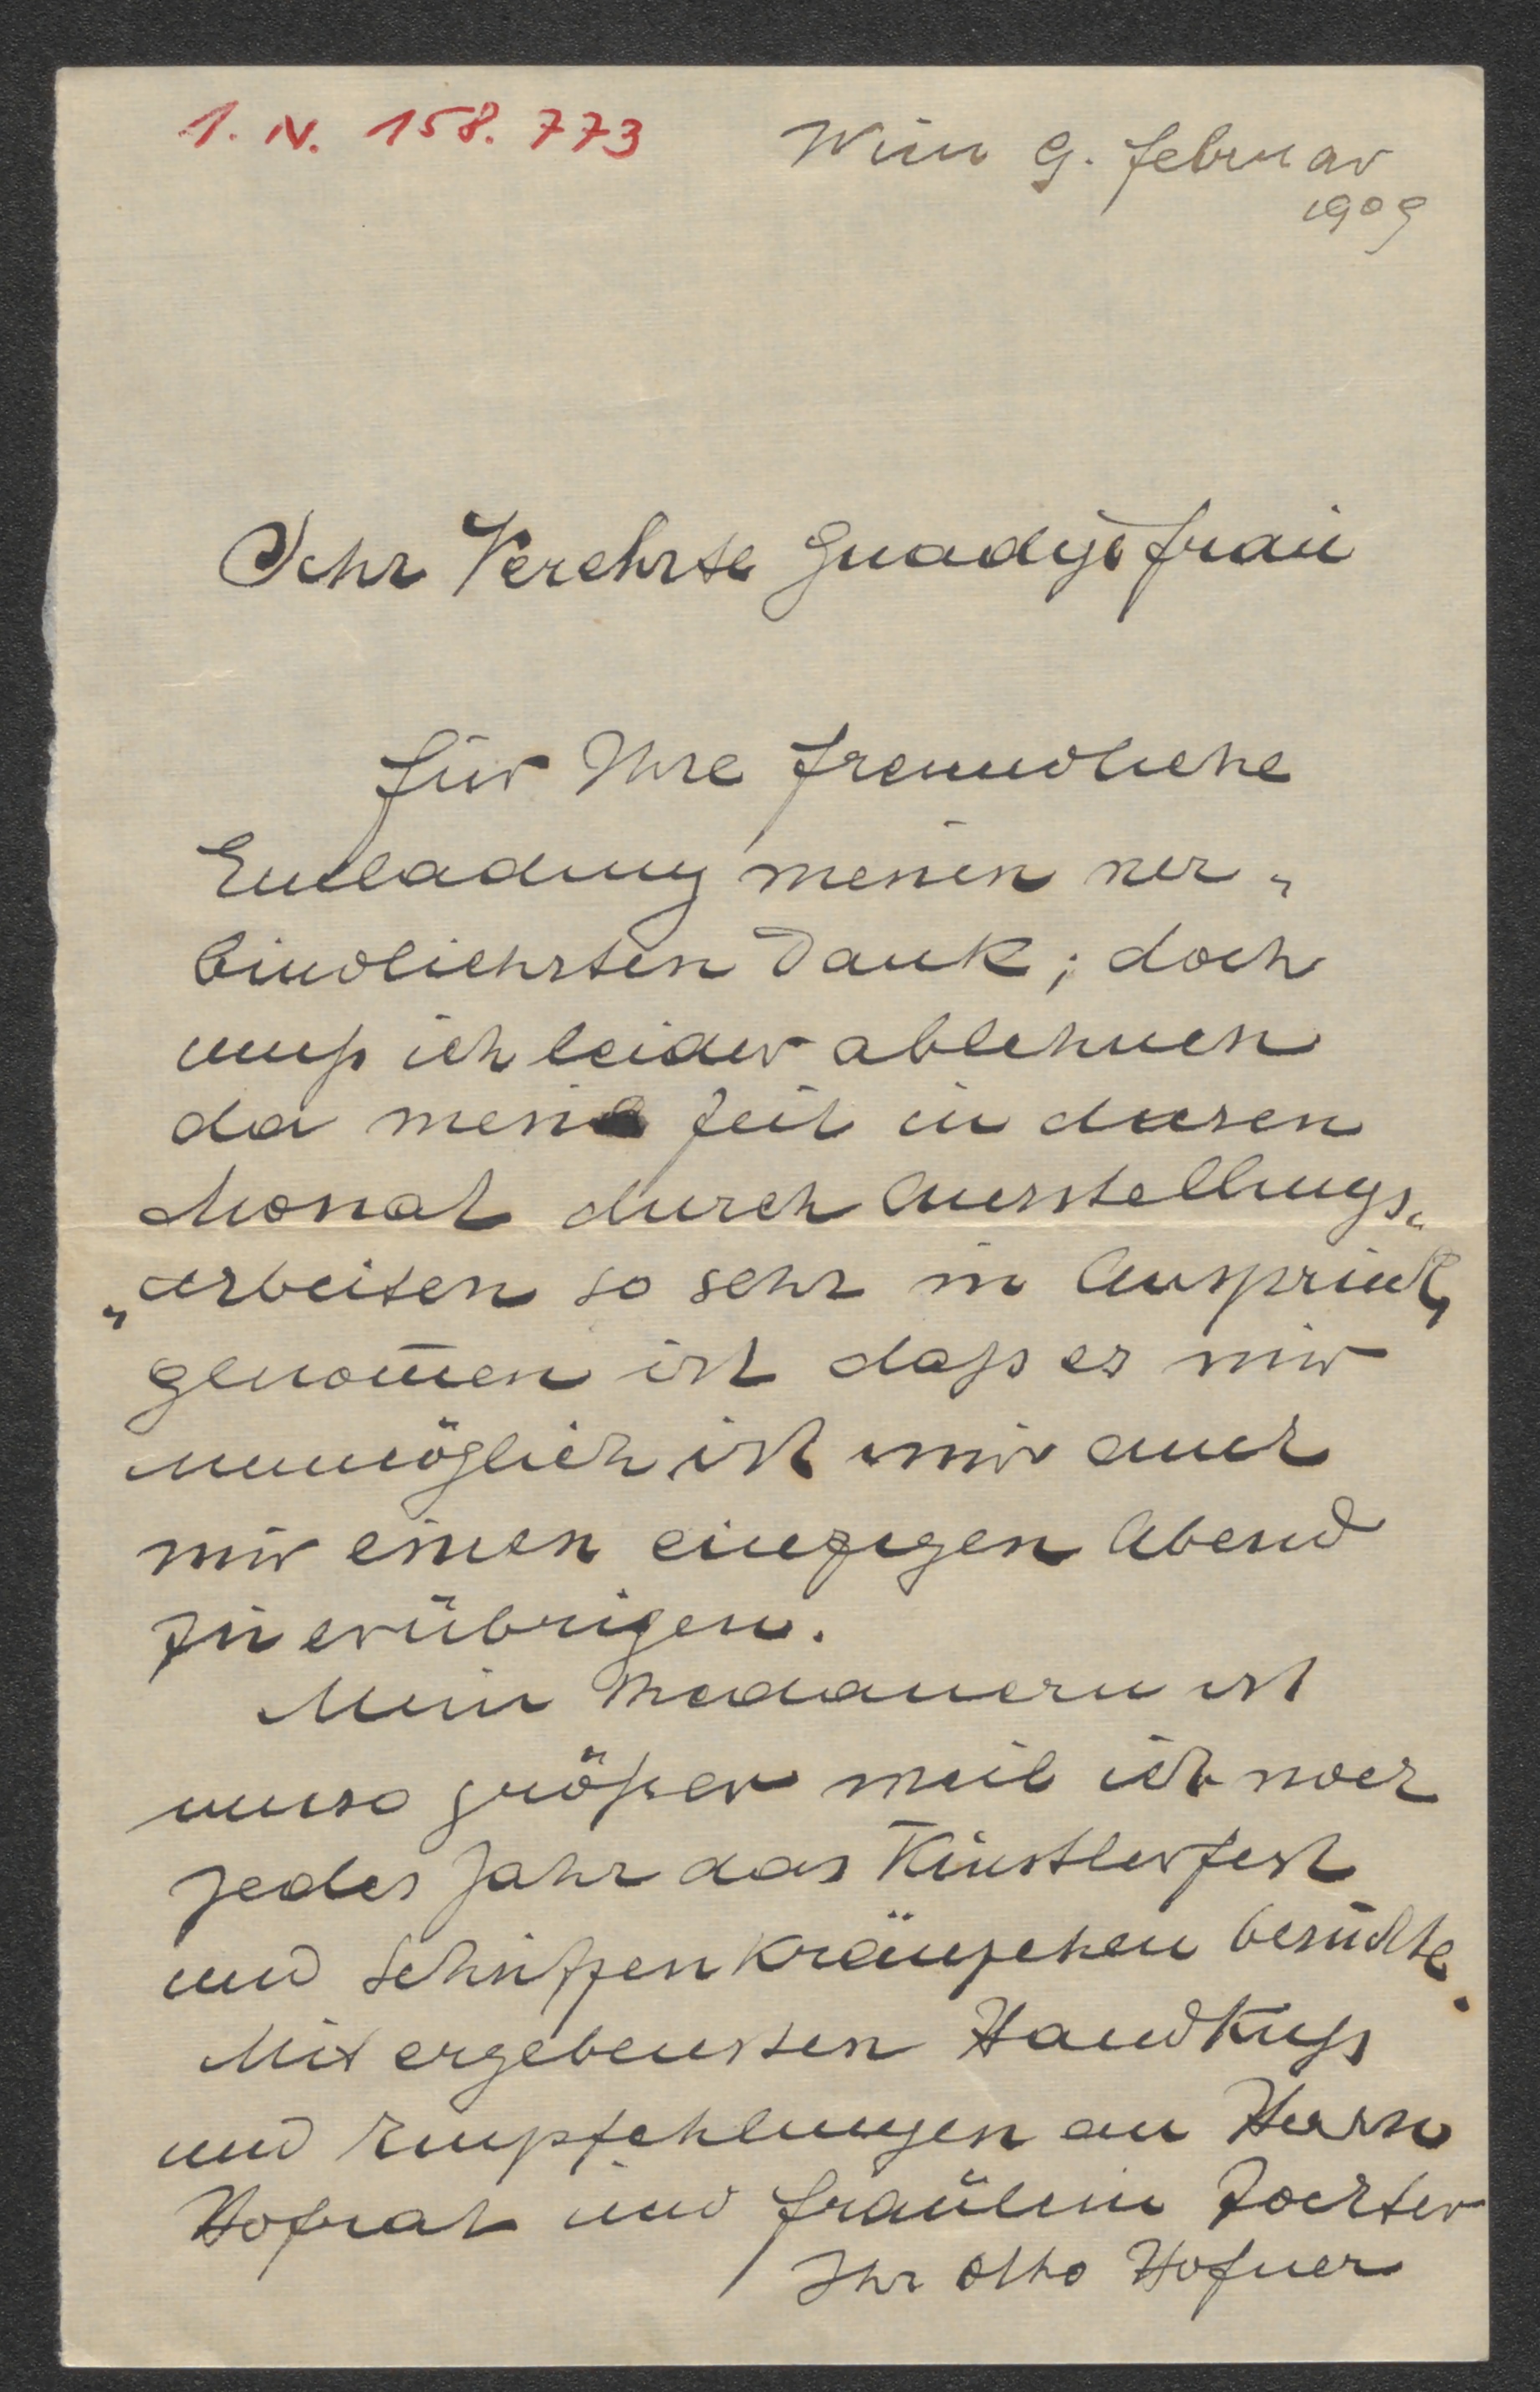 I. N. 158.773
Wien 9. Februar
1909
Sehr Verehrte Gnadige Frau
Für Ihre freundliche
Einladung meinen ver„
bindlichsten Dank; doch
muß ich leider ablehnen
da meine Zeit in diesen
Monat durch Ausstellungs„
„arbeiten so sehr in Anspruch
genom̄en ist daß es mir
unmöglich ist mir auch
nur einen einzigen Abend
zu erübrigen.
Mein Bedauern ist
umso größer weil ich noch
jedes Jahr das Künstlerfest
und Schützenkränzchen besuchte.
Mit ergebensten Handkuß
und Empfehlungen an Herrn
Hofrat und Fräulein Tochter
Ihr Otto Hofner